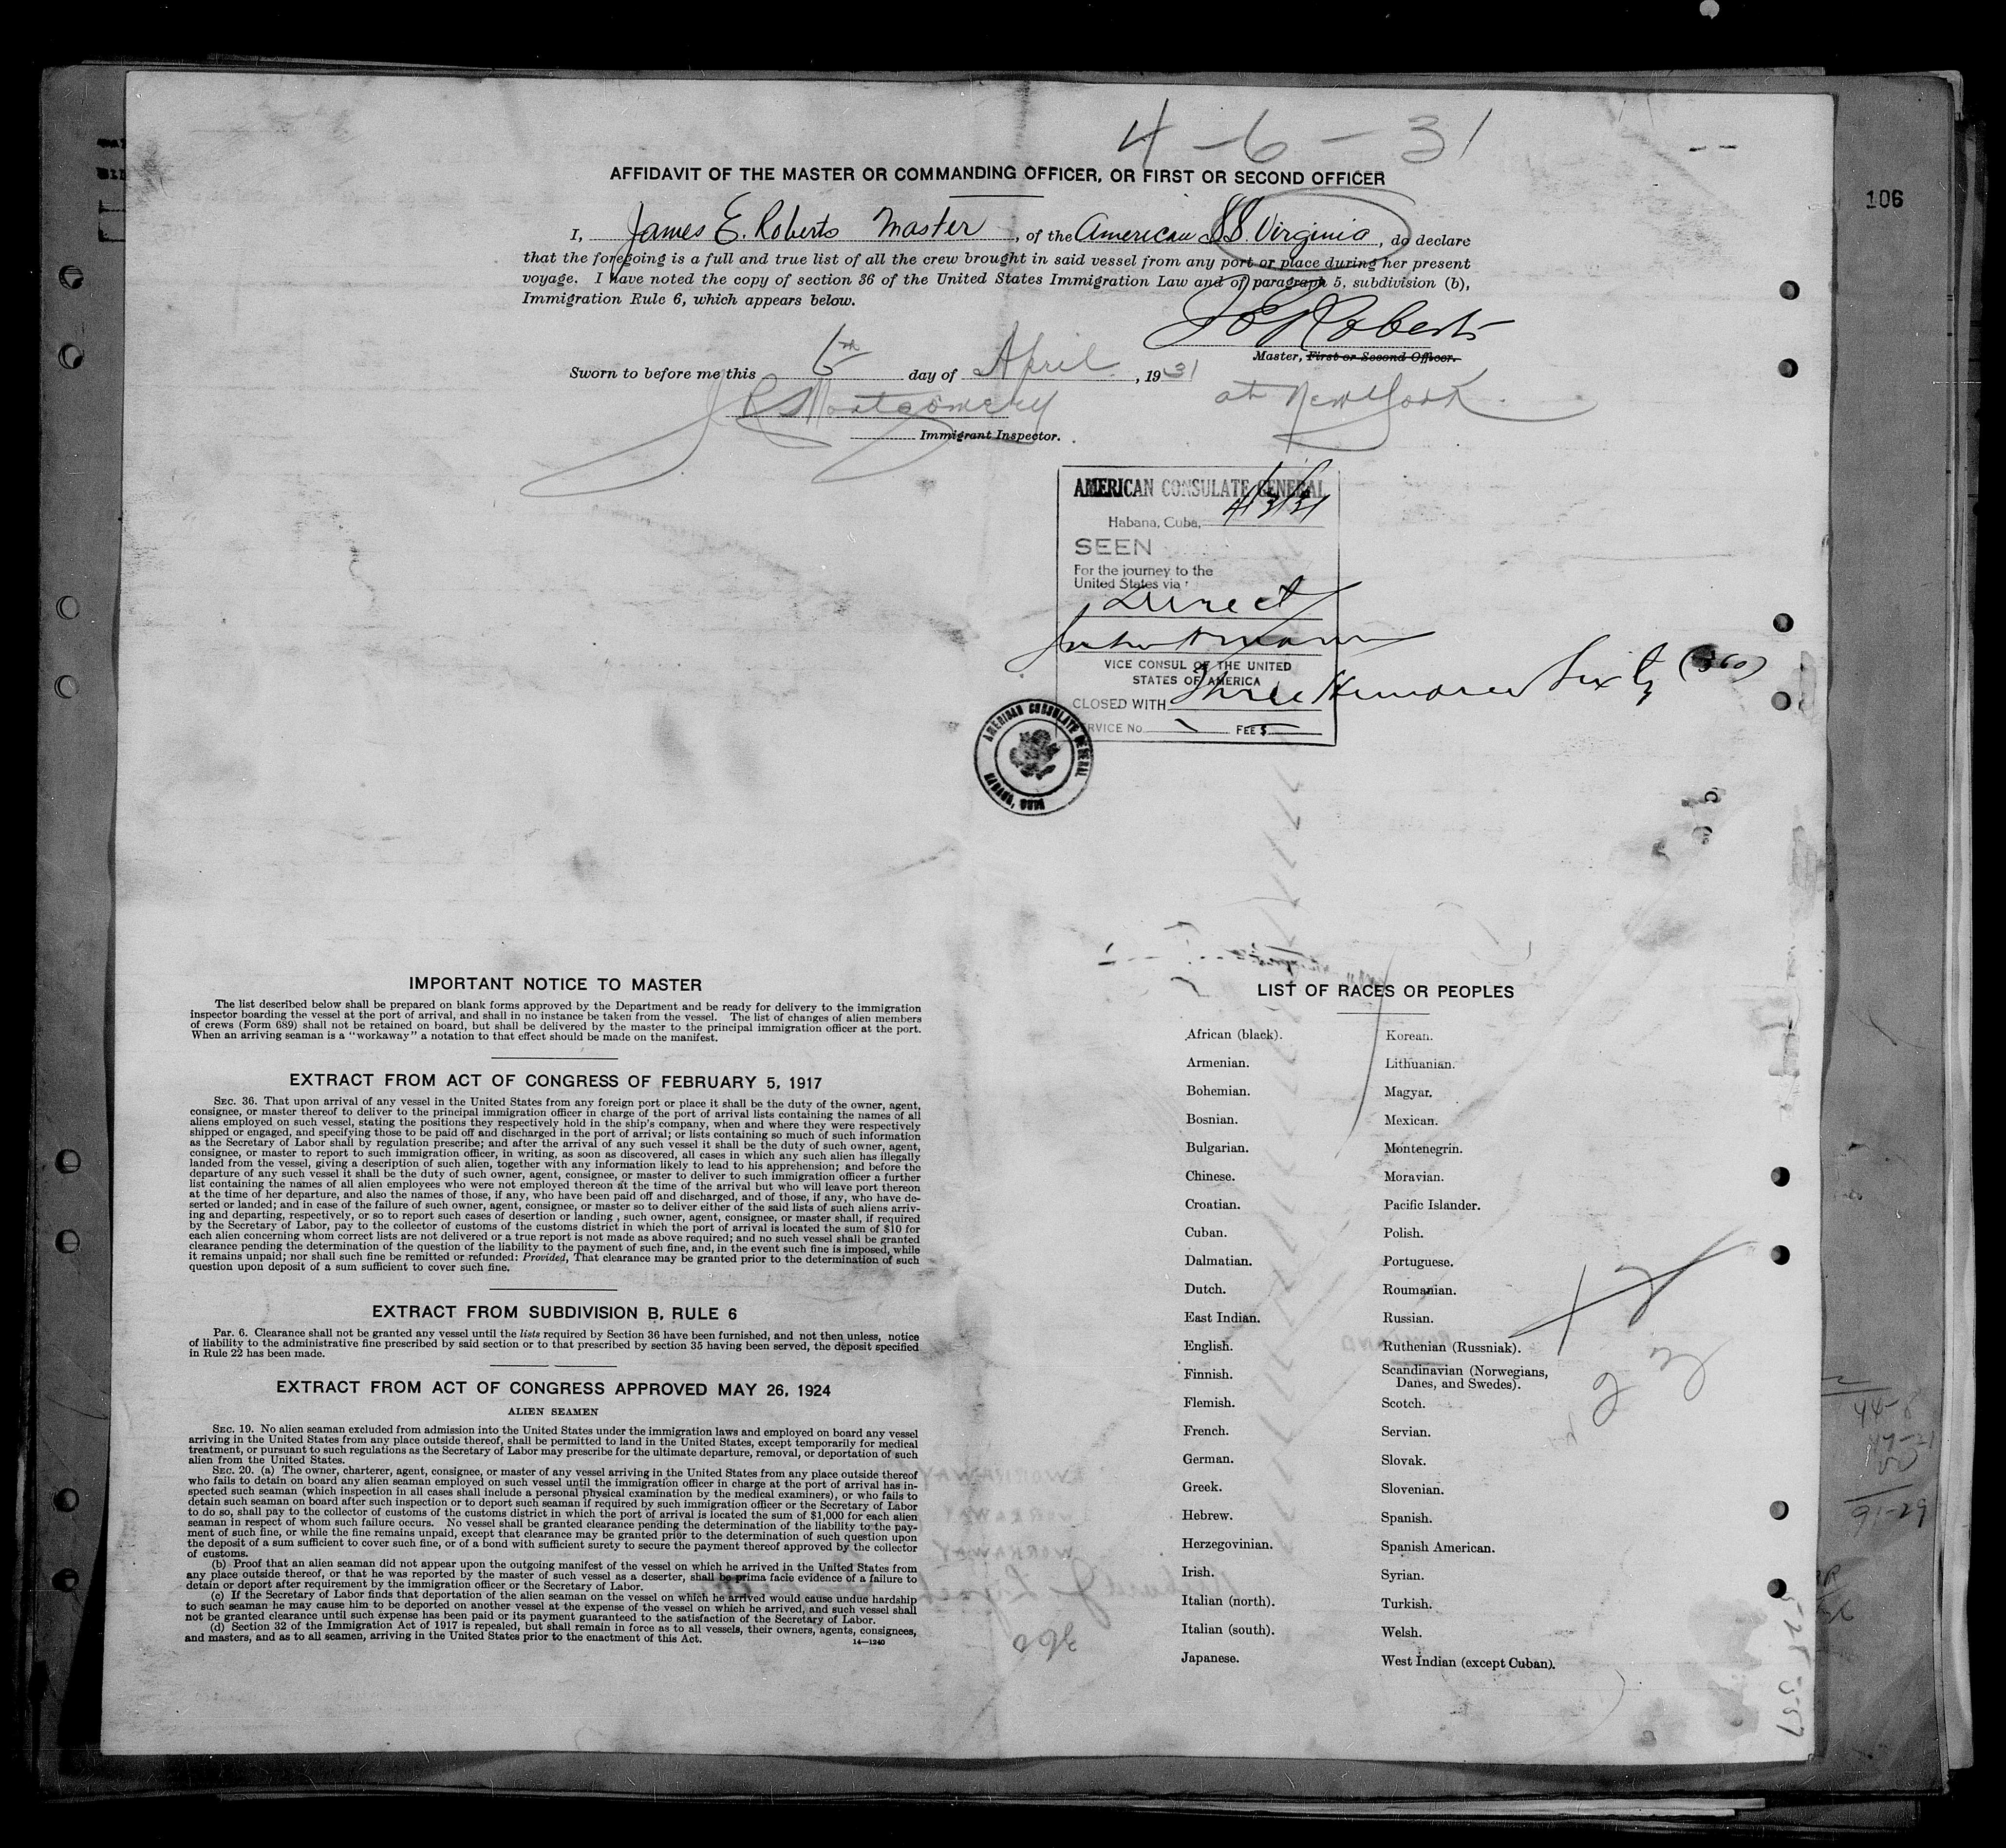 4-6-31
106
AFFIDAVIT OF THE MASTER OR COMMANDING OFFICER, OR FIRST OR SECOND OFFICER
I, James E. Roberts Master, of the American SS. Virginia, do declare
that the foregoing is a full and true list of all the crew brought in said vessel from any port or place during her present
voyage. I have noted the copy of section 36 of the United States Immigration Law and of paragraph 5, subdivision (b),
Immigration Rule 6, which appears below.
J E Roberts
Master, First or Second Officer.
Sworn to before me this 6th day of April, 1931
at New York
J R Montgomery
Immigrant Inspector.
AMERICAN CONSULATE GENERAL
Habana, Cuba, 4/3/31
SEEN
For the journey to the
United States via
Direct
VICE CONSUL OF THE UNITED
STATES OF AMERICA
CLOSED WITH Three Hundred Sixty (360)
SERVICE No. FEE $
AMERICAN CONSULATE GENERAL
HABANA, CUBA
IMPORTANT NOTICE TO MASTER
The list described below shall be prepared on blank forms approved by the Department and be ready for delivery to the immigration
inspector boarding the vessel at the port of arrival, and shall in no instance be taken from the vessel. The list of changes of alien members
of crews (Form 689) shall not be retained on board, but shall be delivered by the master to the principal immigration officer at the port.
When an arriving seaman is a "workaway" a notation to that effect should be made on the manifest.
EXTRACT FROM ACT OF CONGRESS OF FEBRUARY 5, 1917
SEC. 36. That upon arrival of any vessel in the United States from any foreign port or place it shall be the duty of the owner, agent,
consignee, or master thereof to deliver to the principal immigration officer in charge of the port of arrival lists containing the names of all
aliens employed on such vessel, stating the positions they respectively hold in the ship's company, when and where they were respectively
shipped or engaged, and specifying those to be paid off and discharged in the port of arrival; or lists containing so much of such information
as the Secretary of Labor shall by regulation prescribe; and after the arrival of any such vessel it shall be the duty of such owner, agent,
consignee, or master to report to such immigration officer, in writing, as soon as discovered, all cases in which any such alien has illegally
landed from the vessel, giving a description of such alien, together with any information likely to lead to his apprehension; and before the
departure of any such vessel it shall be the duty of such owner, agent, consignee, or master to deliver to such immigration officer a further
list containing the names of all alien employees who were not employed thereon at the time of the arrival but who will leave port thereon
at the time of her departure, and also the names of those, if any, who have been paid off and discharged, and of those, if any, who have de-
serted or landed; and in case of the failure of such owner, agent, consignee, or master so to deliver either of the said lists of such aliens arriv-
ing and departing, respectively, or so to report such cases of desertion or landing , such owner, agent, consignee, or master shall, if required
by the Secretary of Labor, pay to the collector of customs of the customs district in which the port of arrival is located the sum of $10 for
each alien concerning whom correct lists are not delivered or a true report is not made as above required; and no such vessel shall be granted
clearance pending the determination of the question of the liability to the payment of such fine, and, in the event such fine is imposed, while
it remains unpaid; nor shall such fine be remitted or refunded: Provided, That clearance may be granted prior to the determination of such
question upon deposit of a sum sufficient to cover such fine.
EXTRACT FROM SUBDIVISION B, RULE 6
Par. 6. Clearance shall not be granted any vessel until the lists required by Section 36 have been furnished, and not then unless, notice
of liability to the administrative fine prescribed by said section or to that prescribed by section 35 having been served, the deposit specified
in Rule 22 has been made.
EXTRACT FROM ACT OF CONGRESS APPROVED MAY 26, 1924
ALIEN SEAMEN
SEC. 19. No alien seaman excluded from admission into the United States under the immigration laws and employed on board any vessel
arriving in the United States from any place outside thereof, shall be permitted to land in the United States, except temporarily for medical
treatment, or pursuant to such regulations as the Secretary of Labor may prescribe for the ultimate departure, removal, or deportation of such
alien from the United States.
SEC. 20. (a) The owner, charterer, agent, consignee, or master of any vessel arriving in the United States from any place outside thereof
who fails to detain on board any alien seaman employed on such vessel until the immigration officer in charge at the port of arrival has in-
spected such seaman (which inspection in all cases shall include a personal physical examination by the medical examiners), or who fails to
detain such seaman on board after such inspection or to deport such seaman if required by such immigration officer or the Secretary of Labor
to do so, shall pay to the collector of customs of the customs district in which the port of arrival is located the sum of $1,000 for each alien
seaman in respect of whom such failure occurs. No vessel shall be granted clearance pending the determination of the liability to the pay-
ment of such fine, or while the fine remains unpaid, except that clearance may be granted prior to the determination of such question upon
the deposit of a sum sufficient to cover such fine, or of a bond with sufficient surety to secure the payment thereof approved by the collector
of customs.
(b) Proof that an alien seaman did not appear upon the outgoing manifest of the vessel on which he arrived in the United States from
any place outside thereof, or that he was reported by the master of such vessel as a deserter, shall be prima facie evidence of a failure to
detain or deport after requirement by the immigration officer or the Secretary of Labor.
(c) If the Secretary of Labor finds that deportation of the alien seaman on the vessel on which he arrived would cause undue hardship
to such seaman he may cause him to be deported on another vessel at the expense of the vessel on which he arrived, and such vessel shall
not be granted clearance until such expense has been paid or its payment guaranteed to the satisfaction of the Secretary of Labor.
(d) Section 32 of the Immigration Act of 1917 is repealed, but shall remain in force as to all vessels, their owners, agents, consignees,
and masters, and as to all seamen, arriving in the United States prior to the enactment of this Act.
14—1240
LIST OF RACES OR PEOPLES
African (black). Korean.
Armenian. Lithuanian.
Bohemian. Magyar.
Bosnian. Mexican.
Bulgarian. Montenegrin.
Chinese. Moravian.
Croatian. Pacific Islander.
Cuban. Polish.
Dalmatian. Portuguese.
Dutch. Roumanian.
East Indian. Russian.
English. Ruthenian (Russniak).
Finnish. Scandinavian (Norwegians,
Danes, and Swedes).
Flemish. Scotch.
French. Servian.
German. Slovak.
Greek. Slovenian.
Hebrew. Spanish.
Herzegovinian. Spanish American.
Irish. Syrian.
Italian (north). Turkish.
Italian (south). Welsh.
Japanese. West Indian (except Cuban).
91-29